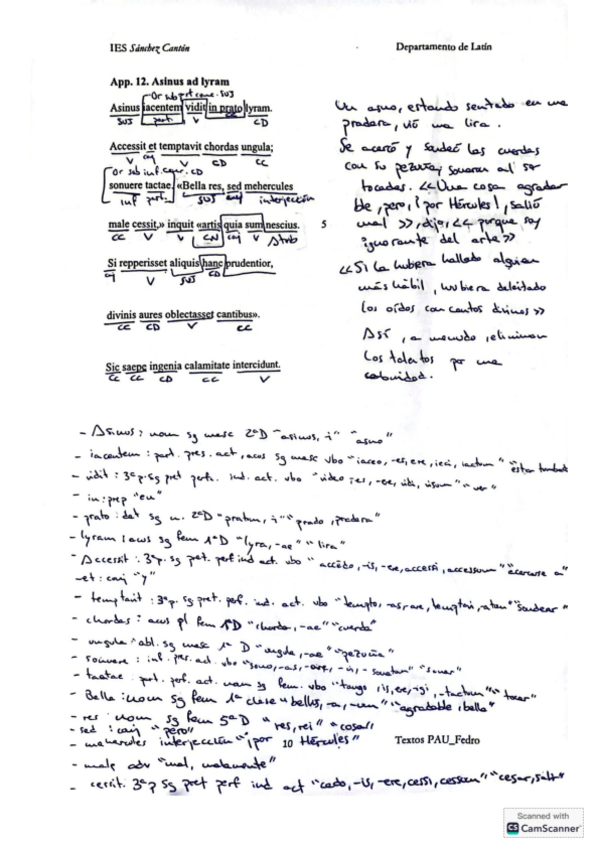 IES Sánchez Cantón
Departamento de Latín
App. 12. Asinus ad lyram
Or sub SUJ
Asinus iacentem vidit in prato lyram.
SUJ part. V CC CD
Accessit et temptavit chordas ungula;
V conj V CD CC
Or sub inf CD
sonuere tactae. «Bella res, sed mehercules
inf part. SUJ conj interjección
male cessit,» inquit «artis quia sum nescius.
CC V V CN conj V Atrib
5
Si repperisset aliquis hanc prudentior,
cj V SUJ CD
divinis aures oblectasset cantibus».
CC CD V CC
Sic saepe ingenia calamitate intercidunt.
CC CC CD CC V
Un asno, estando sentado en una
pradera, vió una lira.
Se acercó y sondeó las cuerdas
con su pezuña; sonaron al ser
tocadas. <<Una cosa agrada-
ble, pero, ¡por Hércules!, salió
mal>>, dijo, <<porque soy
ignorante del arte>>
<<Si la hubiera hallado alguien
más hábil, hubiera deleitado
los oídos con cantos divinos>>
Así, a menudo, eliminan
los talentos por una
calamidad.
- Asinus: nom sg masc 2ªD "asinus, i" "asno"
- iacentem: part. pres. act, acus sg masc vbo "iaceo, -es, ere, ieci, iactum" "estar tumbado
- vidit: 3ªp. sg pret perf. ind. act. vbo "video, es, -ere, vidi, visum" "ver"
- in: prep "en"
- prato: dat sg n. 2ªD "pratum, i" "prado, pradera"
- lyram: acus sg fem 1ªD "lyra, -ae" "lira"
- Accessit: 3ªp. sg pret. perf ind act. vbo "accēdo, -is, -ere, accessi, accessum" "acercarse a"
- et: conj "y"
- temptavit: 3ªp. sg pret. perf. ind. act. vbo "tempto, -as, are, temptavi, atum" "sondear"
- chordas: acus pl fem 1ªD "chorda, -ae" "cuerda"
- ungula: abl. sg masc 1ª D "ungula, -ae" "pezuña"
- sonuere: inf. pres. act. vbo "sono, -as, -are, -ui, - sonatum" "sonar"
- tactae: part. perf. act. nom sg fem. vbo "tango, is, ere, -igi, -tactum" "tocar"
- Bella: nom sg fem 1ª clase "bellus, -a, -um" "agradable, bella"
- res nom sg fem 5ªD "res, rei" "cosa"
- sed: conj "pero"
- mehercules interjección "¡por Hércules"
10
Textos PAU_Fedro
- male adv "mal, malamente"
- cessit. 3ªp sg pret perf ind act "cedo, -is, -ere, cessi, cessum" "cesar, salir"
Scanned with
CS CamScanner